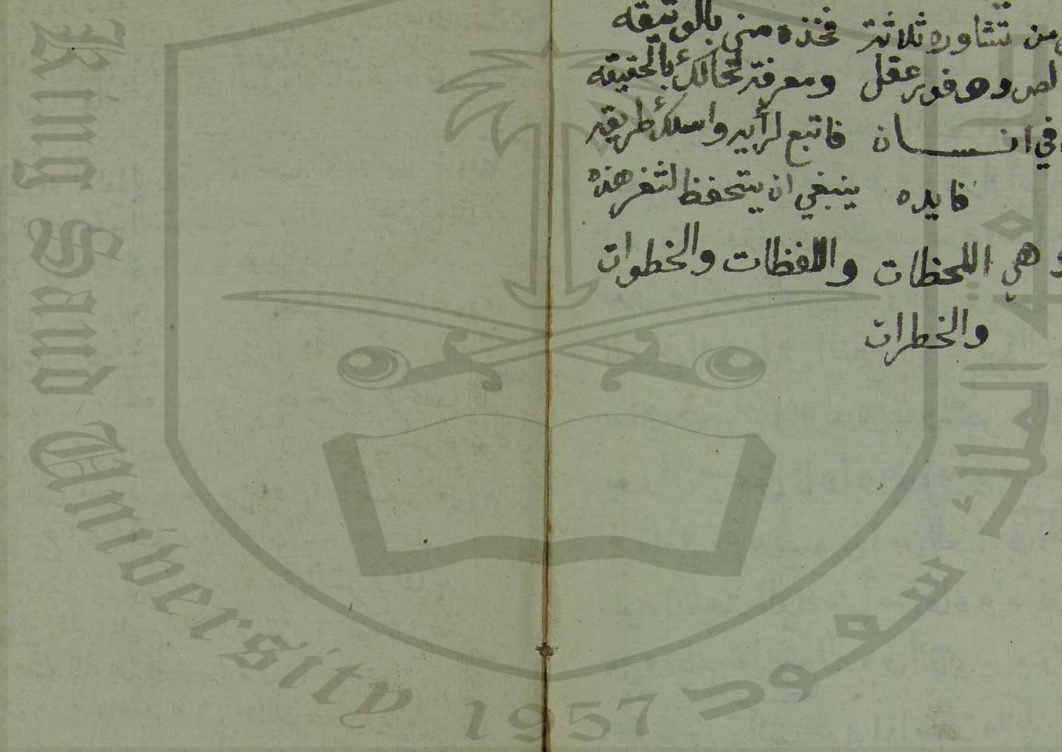 من تشاوره ثلاثة فخذه مني بالوثيقه
ووفور عقل ومعرفة لحالك بالحقيقه
انسان فاتبع لرأيه واسلك طريقه
فايده ينبغي ان يتحفظ هذه
هي اللحظات واللفظات والخطوات
والخطرات
King Saud University 1957